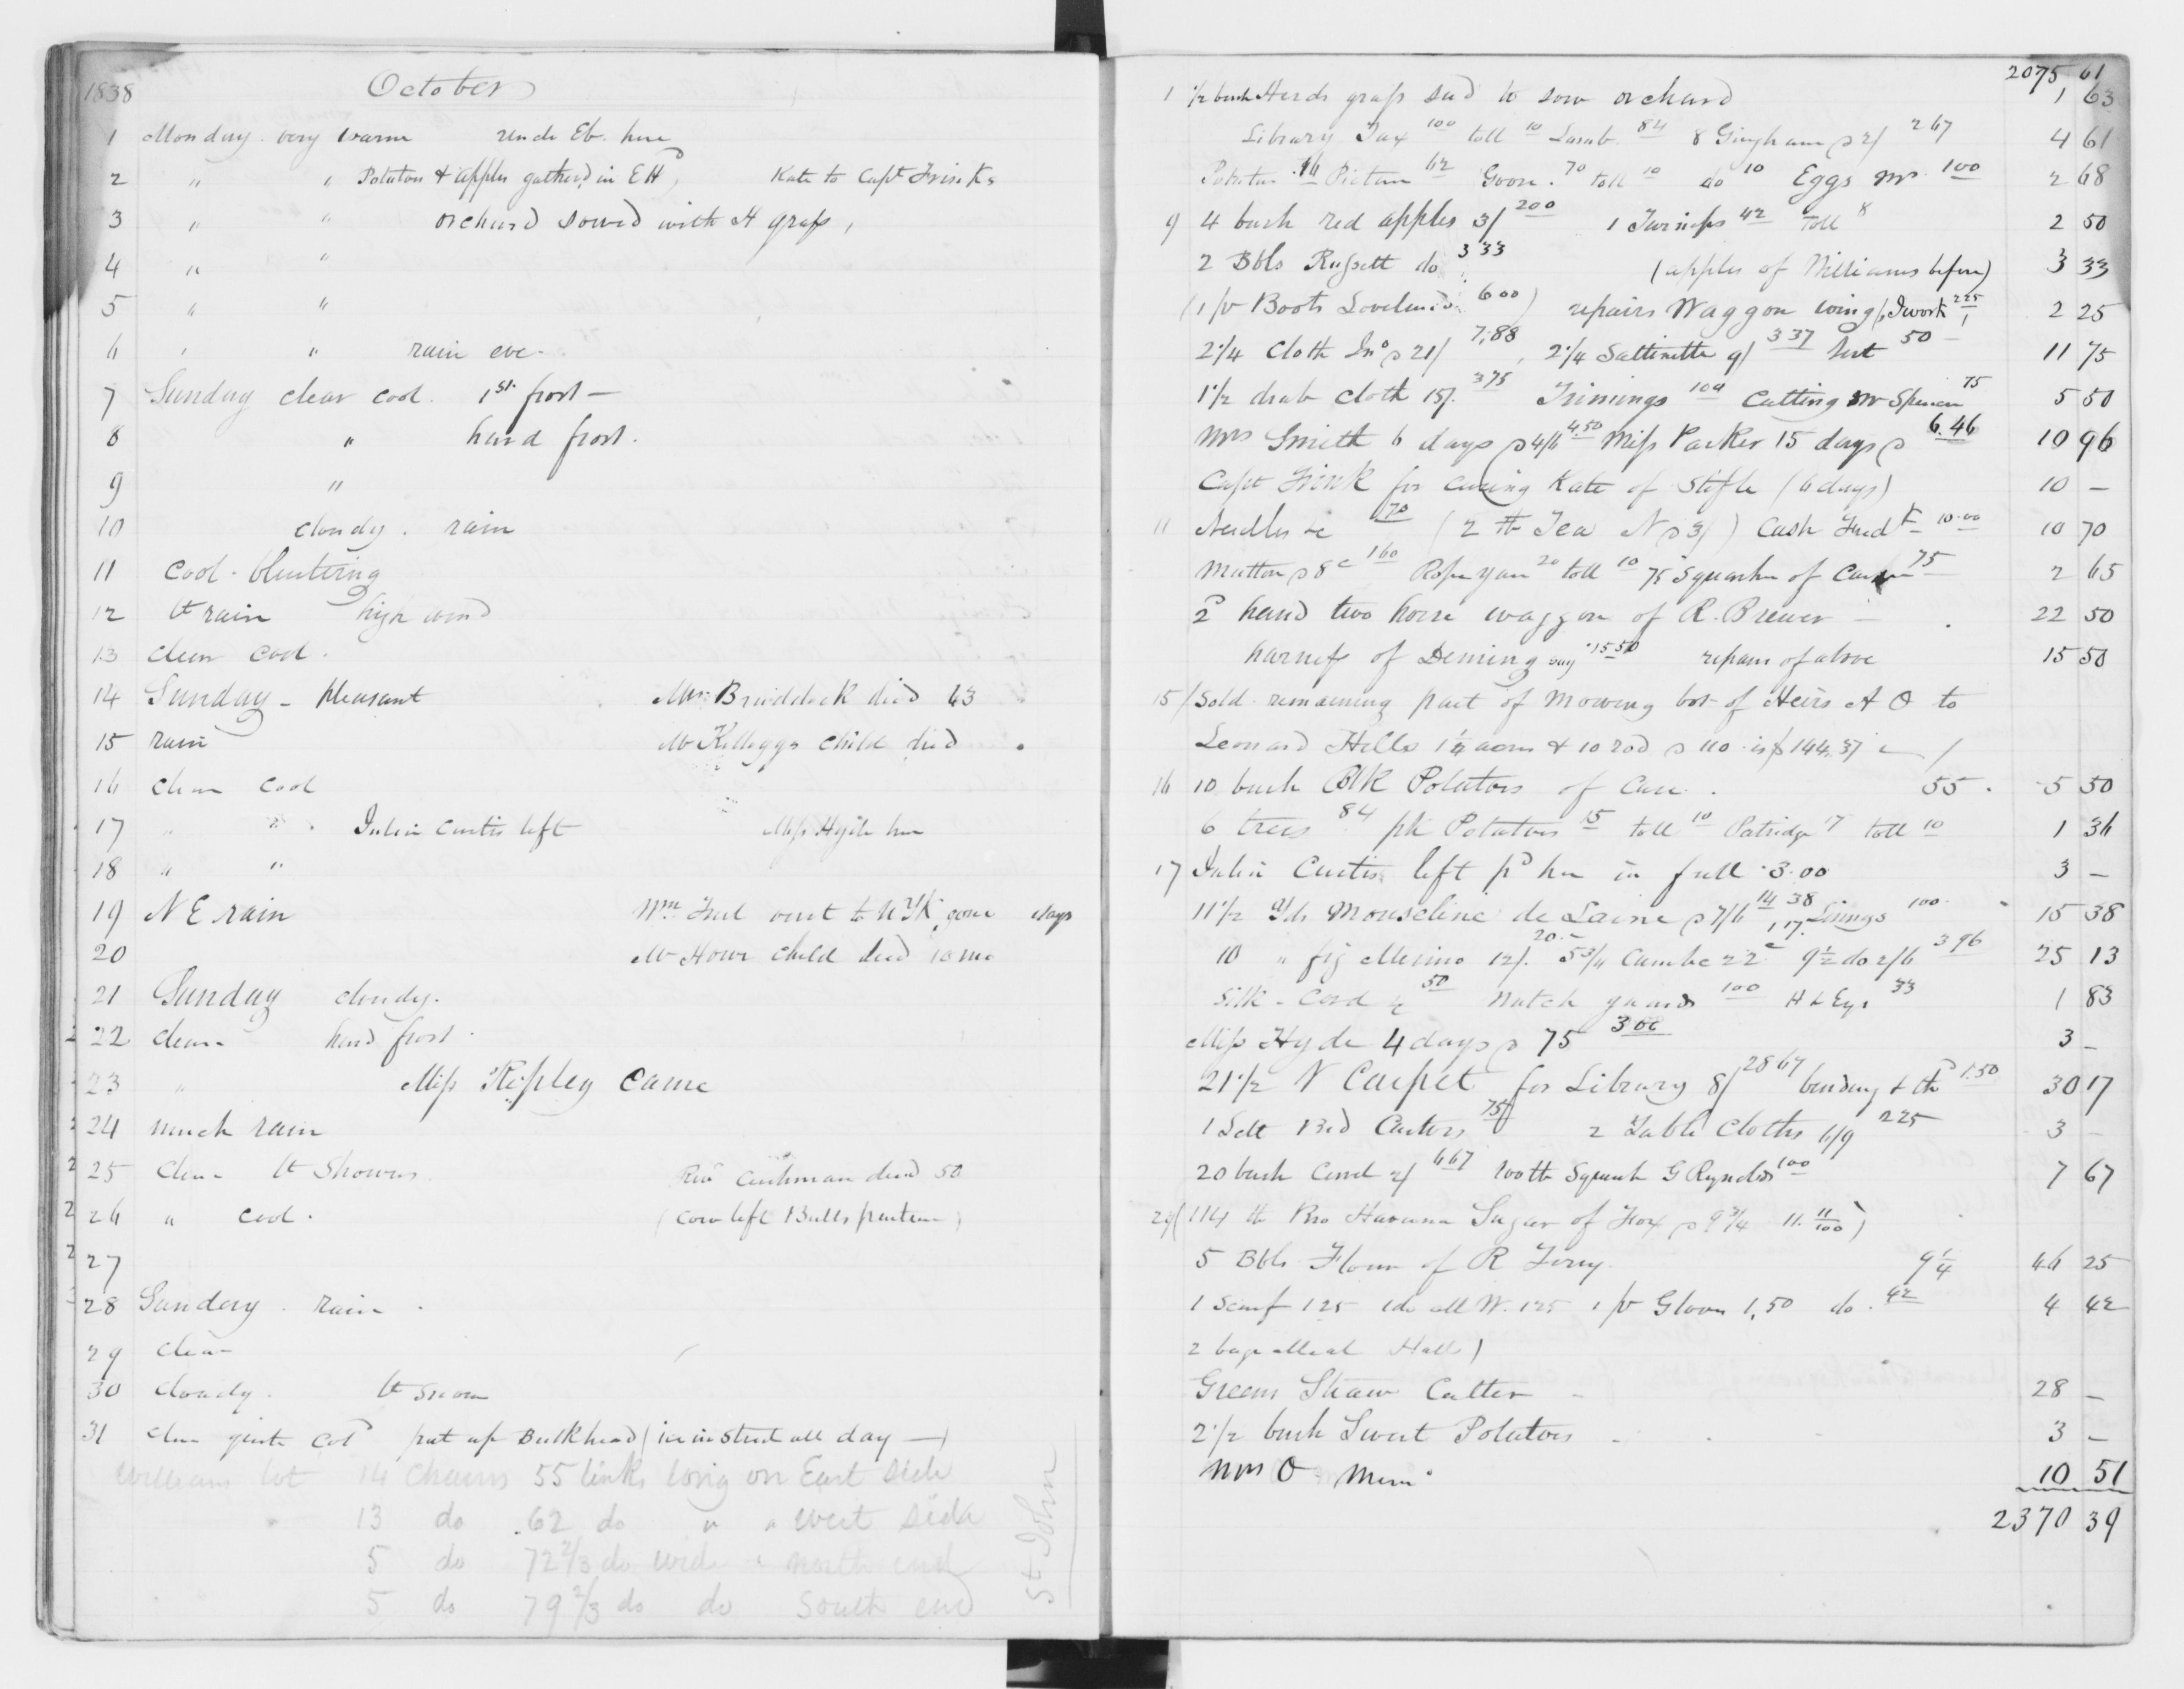 1838 October
1 Monday. very warm Uncle Eb. here
2 " " Potatoes & apples gathered in EH, Kate to Capt Frinks
3 " " orchard sowed with H grass,
4 " "
5 " "
6 " " rain eve.
7 Sunday clear cool. 1st. frost —
8 " hard frost.
9 "
10 cloudy. rain
11 Cool. blustering
12 lt rain high wind
13 clear cool.
14 Sunday - pleasant died 43
15 rain Mr Kelloggs child died
16 clear cool
17 " " . Julia Curtis left Miss Hyde here
18 " "
19 N E rain Wm went to N York, gone days
20 Mr Howe child died 10 mo
21 Sunday cloudy.
22 clear hard frost.
23 " Miss Ripley came
24 much rain
25 Clear lt Showers Rev Cushman died 50
26 " cool. (Cow left Bulls pasture)
27
28 Sunday. rain.
29 clear
30 cloudy. lt snow
31 clear quite cold put up Bulkhead (ice in street all day —)
Williams lot 14 Chains 55 links long on East side
13 do .62 do " " west side
5 do 72 2/3 do wide " north end
5 do 79 2/3 do do South end
St John
2075 61
1 1/2 bush Herds grass seed to sow orchard 1 63
Library Tax 100 toll 10 84 8 Gingham @ 2/ 267 4 61
Potatoes 16 Picture 62 Goose. 70 toll 10 do 10 Eggs 100 2 68
9 4 bush red apples 3/ 200 1 Turnips 42 toll 8 2 50
2 Bbls Russett do 333 (apples of Williams before) 3 33
(1 pr Boots 600) repairs Waggon 225 2 25
2 1/4 Cloth Jno @ 21/ 7,88, 2 1/4 Sattinette 9/ 337 50 11 75
1 1/2 drab Cloth 15/. 375 Trimings 100 Cutting Mr Spencer 75 5 50
Mrs Smith 6 days @ 4/6 4.50 Miss Parker 15 days @ 6.46 10 96
Capt Frink for curing Kate of Stifle (6 days) 10 —
11 Needles &c 70 (2 lb Tea N @ 3/) Cash Fred 10.00 10 70
Mutton @ 8c 160 20 toll 10 75 2 65
2d hand two horse waggon of R. Brewer — 22 50
harness of Deming say 15.50 repairs of above 15 50
15 (Sold remaining part of Mowing bot of Heirs A O to
Leonard Hills 1 1/4 acres & 10 rod @ 110 is $144.37
16 10 bush Potatoes of Case. 55. 5 50
6 trees 84 pk Potatoes 15 toll 10 Patridge 17 toll 10 1 36
17 Julia Curtis left pd her in full 3.00 3 —
11 1/2 Yds Mouseline de Laine @ 7/6 14 38 Linings 100 15 38
10 " fig Merino 12/. 20.- 5 3/4 22c 1,17. 9 1/2 do 2/6 396 25 13
Silk - Cord &c 50 Watch guard 100 H & Eys 33 1 83
Miss Hyde 4 days @ 75 300 3 —
21 1/2 Y Carpet for Library 8/ 2867 binding & th 1.50 30 17
1 Sett Bed Castors 75 2 Table Cloths 6/9 225 3 —
20 bush 2/ 667 100 lb Squash G Rynolds 100 7 67
(114 lb Bro Havana Sugar of Fox @ 9 3/4 11. 11/100)
5 Bbls Flour of R Terry. 9 1/4 46 25
1 Scarf 125 1 do all W. 125 1 pr Gloves 1,50 do. 42 4 42
2 bags Meal Halls)
Greens Straw Cutter - 28 —
2 1/2 bush Sweet Potatoes 3 —
Mrs O Mem. 10 51
2370 39